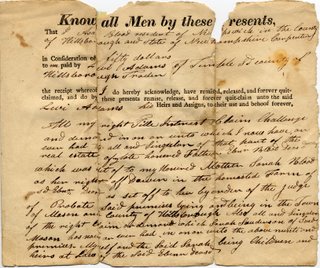 Know all Men by these Presents,
That I Blood resident of in the County
of Hillsborough and State of New Hampshire
in Consideration of fifty dollars
to me paid by Levi Adams of Temple county of
Hillsborough Trader
the receipt whereof I do hereby acknowledge, have remised, released, and forever quit-
claimed, and do by these presents remise, release, and forever quit-claim unto the said
Levi Adams his Heirs and Assigns, to their own and behoof forever,
All my right Title Interest Claim Challenge
and demand in or on unto which I now have, or
ever had to all and Singular of that part of the
real estate of late honored Father
which was set of to my Honored Mother Sarah Blood
as her right of Dower in the homested Farm of
sd
is set off to her by order of the judge
of Probate Said premises lying and being in the Town
of Mason and County of Hillsborough Also all and Singular
of the right Claim or demand which Sarah of Said
Mason has now or ever had in or on unto the above mentioned
premises Myself and the said Sarah being Children and
heirs at Law of the Said